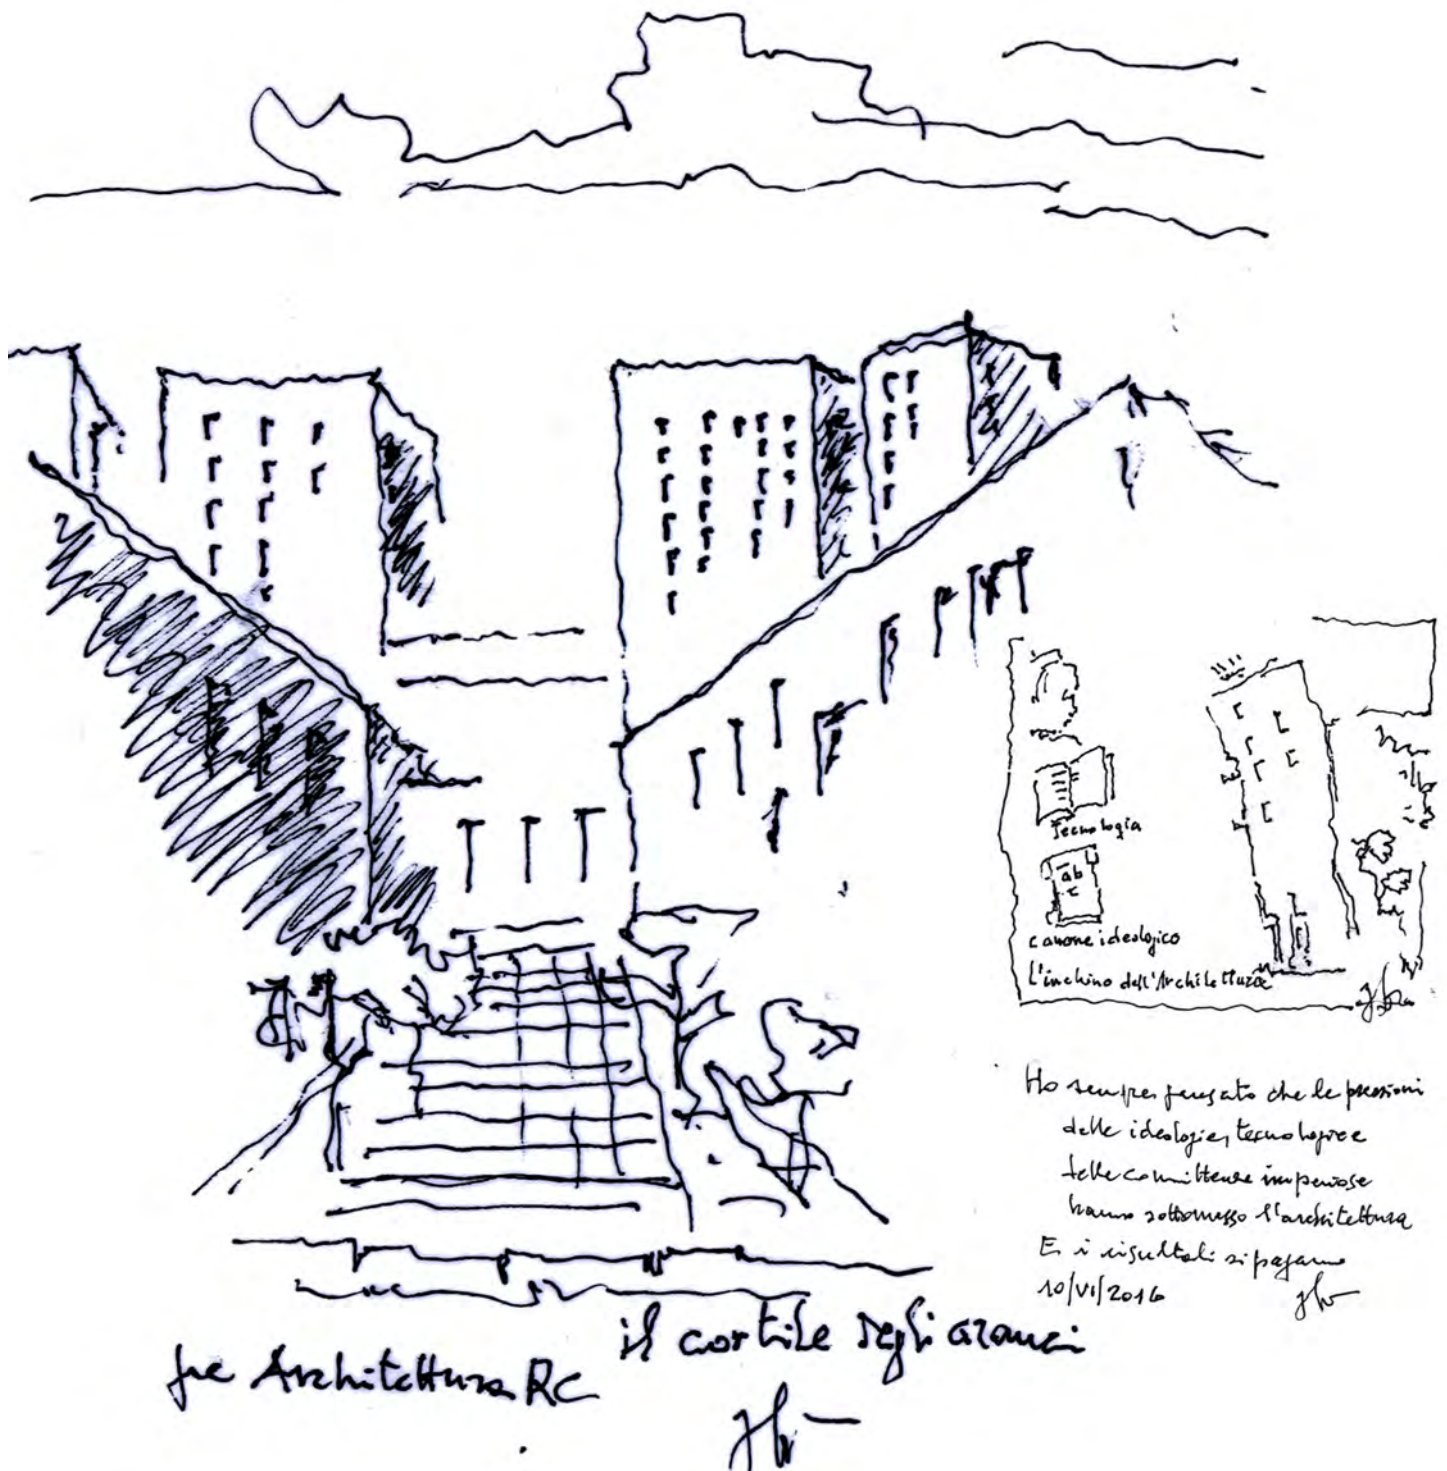 Tecnologia
ab
c
canone ideologico
L'inchino dell'Architettura
Ho sempre pensato che le pressioni
delle ideologie, tecnologie e
delle committenze imperiose
hanno sottomesso l'architettura
E i risultati si pagano
10/VI/2016
il cortile degli aranci
per Architettura RC